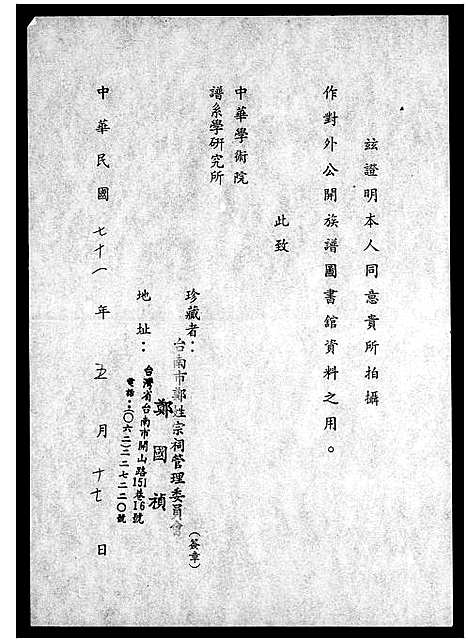 茲證明本人同意貴所拍攝
作對外公開族譜圖書館資料之用。
此致
中華學術院
譜系學研究所
珍藏者：台南市鄭姓宗祠管理委員會
鄭國禎
（簽章）
地址：台灣省台南市開山路151巷16號
電話：（○六二）二二七二二○號
中華民國七十一年五月十七日